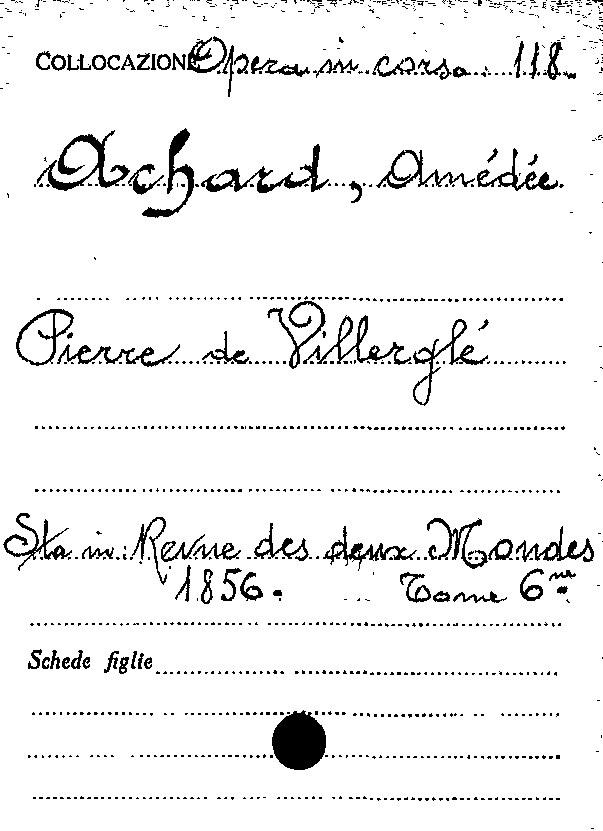 COLLOCAZIONE Opera in corso. 118.
Achard, Amédée
Pierre de Villerglé
Sta in Revue des deux Mondes
1856. Tome 6me
Schede figlie